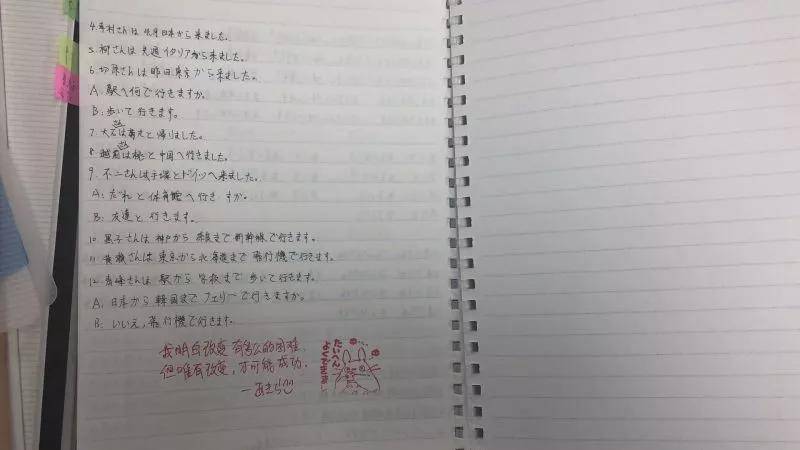 4. 幸村さんは 先月日本から来ました。
5. 柯さんは 先週イタリアから来ました。
6. 切原さんは昨日東京から来ました。
A. 駅へ何で行きますか。
B: 歩いて 行きます。
さん
7. 大石は英二と帰りました。
さん
8. 越前は桃と中国へ行きました。
9. 不二さんは手塚とドイツへ来ました。
A: だれと体育館へ行き すか。
B: 友達と 行きます。
10. 黒子さんは 神戸から 奈良まで 新幹線で行きます。
11. 黄瀬さんは 東京から北海道まで 飛行機で行きます。
12. 青峰さんは 駅から 学校まで 歩いて行きます。
A. 日本から 韓国まで フェリーで行きますか。
B: いいえ、飛行機で行きます。
我明白改變 有多么的困难
但唯有改變，才可能成功.
—あきら